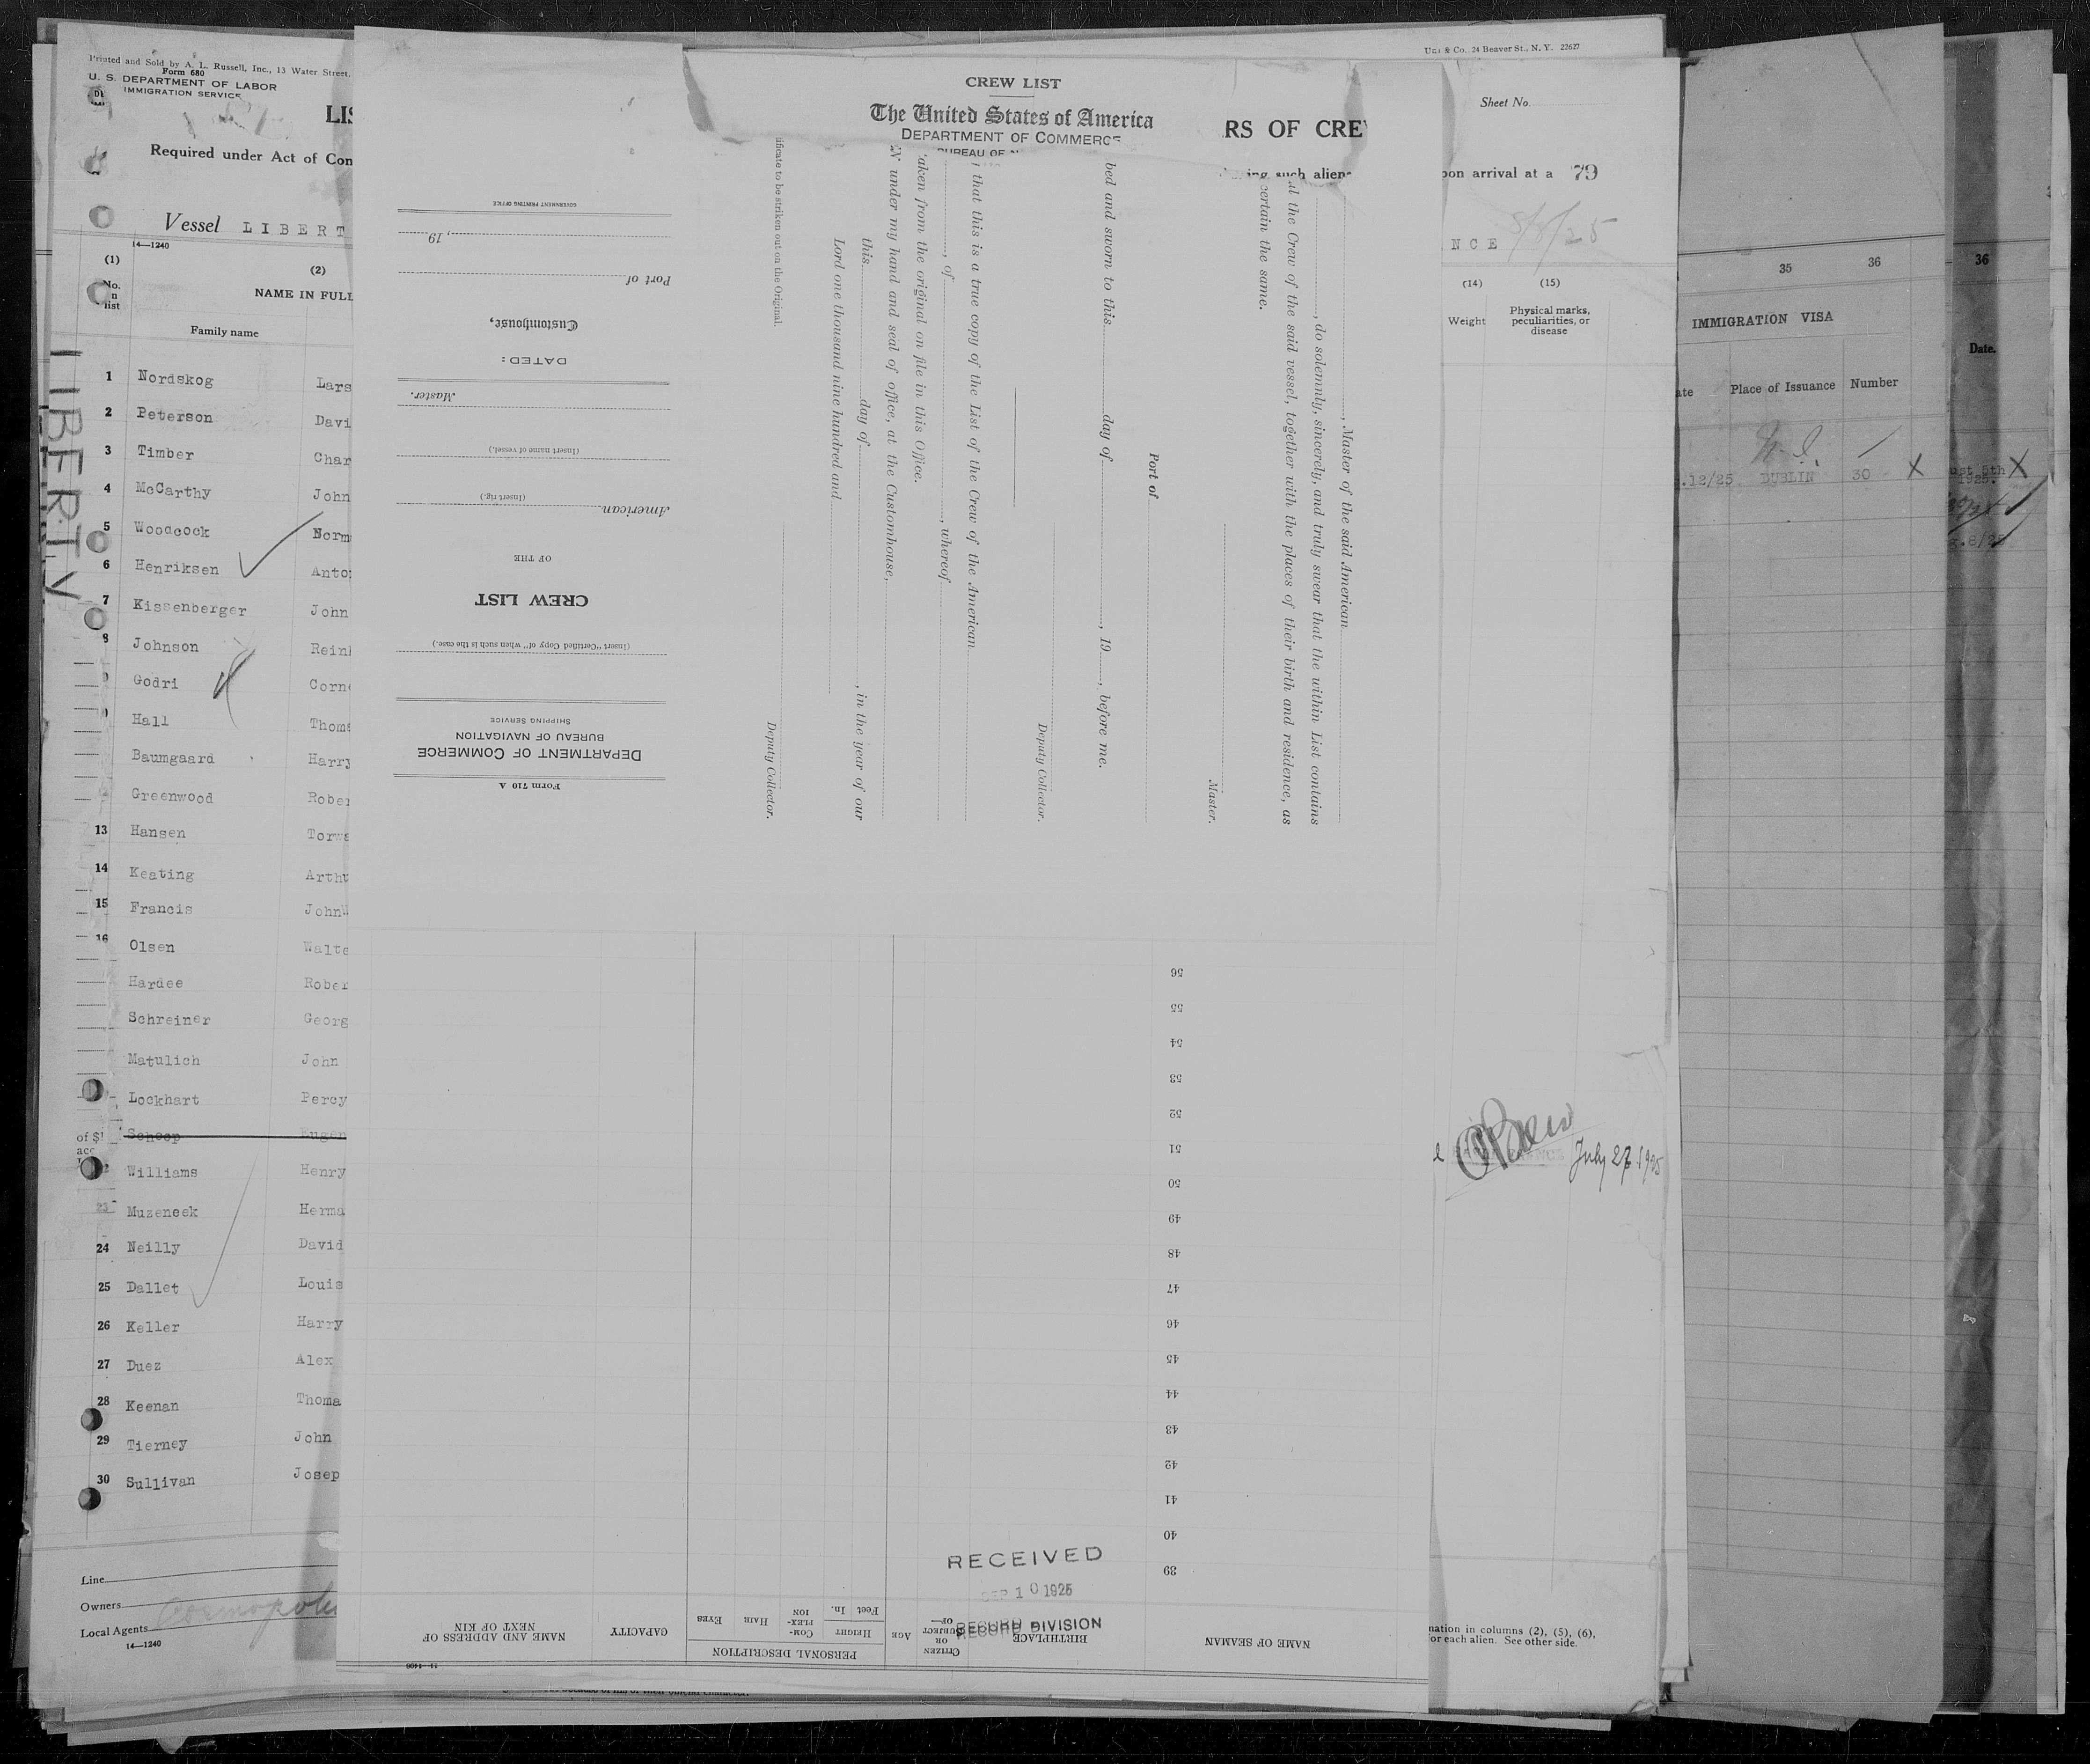 Printed and Sold by A. L. Russell, Inc., 13 Water Street,
Form 680
U. S. DEPARTMENT OF LABOR
IMMIGRATION SERVICE
LIS
Required under Act of Con
Vessel LIBERT
14—1240
(1)
(2)
No.
list
NAME IN FULL
Family name
LIBERTY
1 Nordskog Lars
2 Peterson Davi
3 Timber Char
4 McCarthy John
5 Woodcock Norm
6 Henriksen Anto
7 Kissenberger John
8 Johnson Rein
Godri Corn
Hall Thoma
Baumgaard Harry
Greenwood Rober
13 Hansen Torwa
14 Keating Arthu
15 Francis John
16 Olsen Walte
Hardee Rober
Schreiner Georg
Matulich John
Lockhart Percy
of $1 Schoop Eugen
Williams Henry
23 Muzeneek Herma
24 Neilly David
25 Dallet Louis
26 Keller Harry
27 Duez Alex
28 Keenan Thoma
29 Tierney John
30 Sullivan Josep
Line
Owners
Local Agents
14—1240
CREW LIST
The United States of America
DEPARTMENT OF COMMERCE
BUREAU OF
RS OF CRE
ing such aliens
Form 710 A
DEPARTMENT OF COMMERCE
BUREAU OF NAVIGATION
SHIPPING SERVICE
(Insert "Certified Copy of" when such is the case.)
CREW LIST
OF THE
American
(Insert rig.)
(Insert name of vessel.)
Master.
DATED:
Customhouse,
Port of
, 19
GOVERNMENT PRINTING OFFICE
, Master of the said American
, do solemnly, sincerely, and truly swear that the within List contains
al the Crew of the said vessel, together with the places of their birth and residence, as
certain the same.
Master.
Port of
bed and sworn to this day of , 19 , before me.
Deputy Collector.
that this is a true copy of the List of the Crew of the American
, of , whereof
taken from the original on file in this Office.
N under my hand and seal of office, at the Customhouse,
this day of , in the year of our
Lord one thousand nine hundred and
Deputy Collector.
ificate to be striken out on the Original.
NAME OF SEAMAN
BIRTHPLACE
CITIZEN OR SUBJECT OF—
AGE
PERSONAL DESCRIPTION
HEIGHT
Feet In.
COM-PLEX-ION
HAIR
EYES
CAPACITY
NAME AND ADDRESS OF NEXT OF KIN
39
40
41
42
43
44
45
46
47
48
49
50
51
52
53
54
55
56
11—1408
RECEIVED
SEP 10 1925
RECORD DIVISION
& Co. 24 Beaver St., N. Y. 22627
Sheet No.
pon arrival at a
79
NCE 8/8/25
(14)
(15)
Weight
Physical marks, peculiarities, or disease
July 27 1925
mation in columns (2), (5), (6),
or each alien. See other side.
35
36
IMMIGRATION VISA
ate Place of Issuance Number
.12/25 DUBLIN 30 X
36
Date.
ust 5th X
1925.